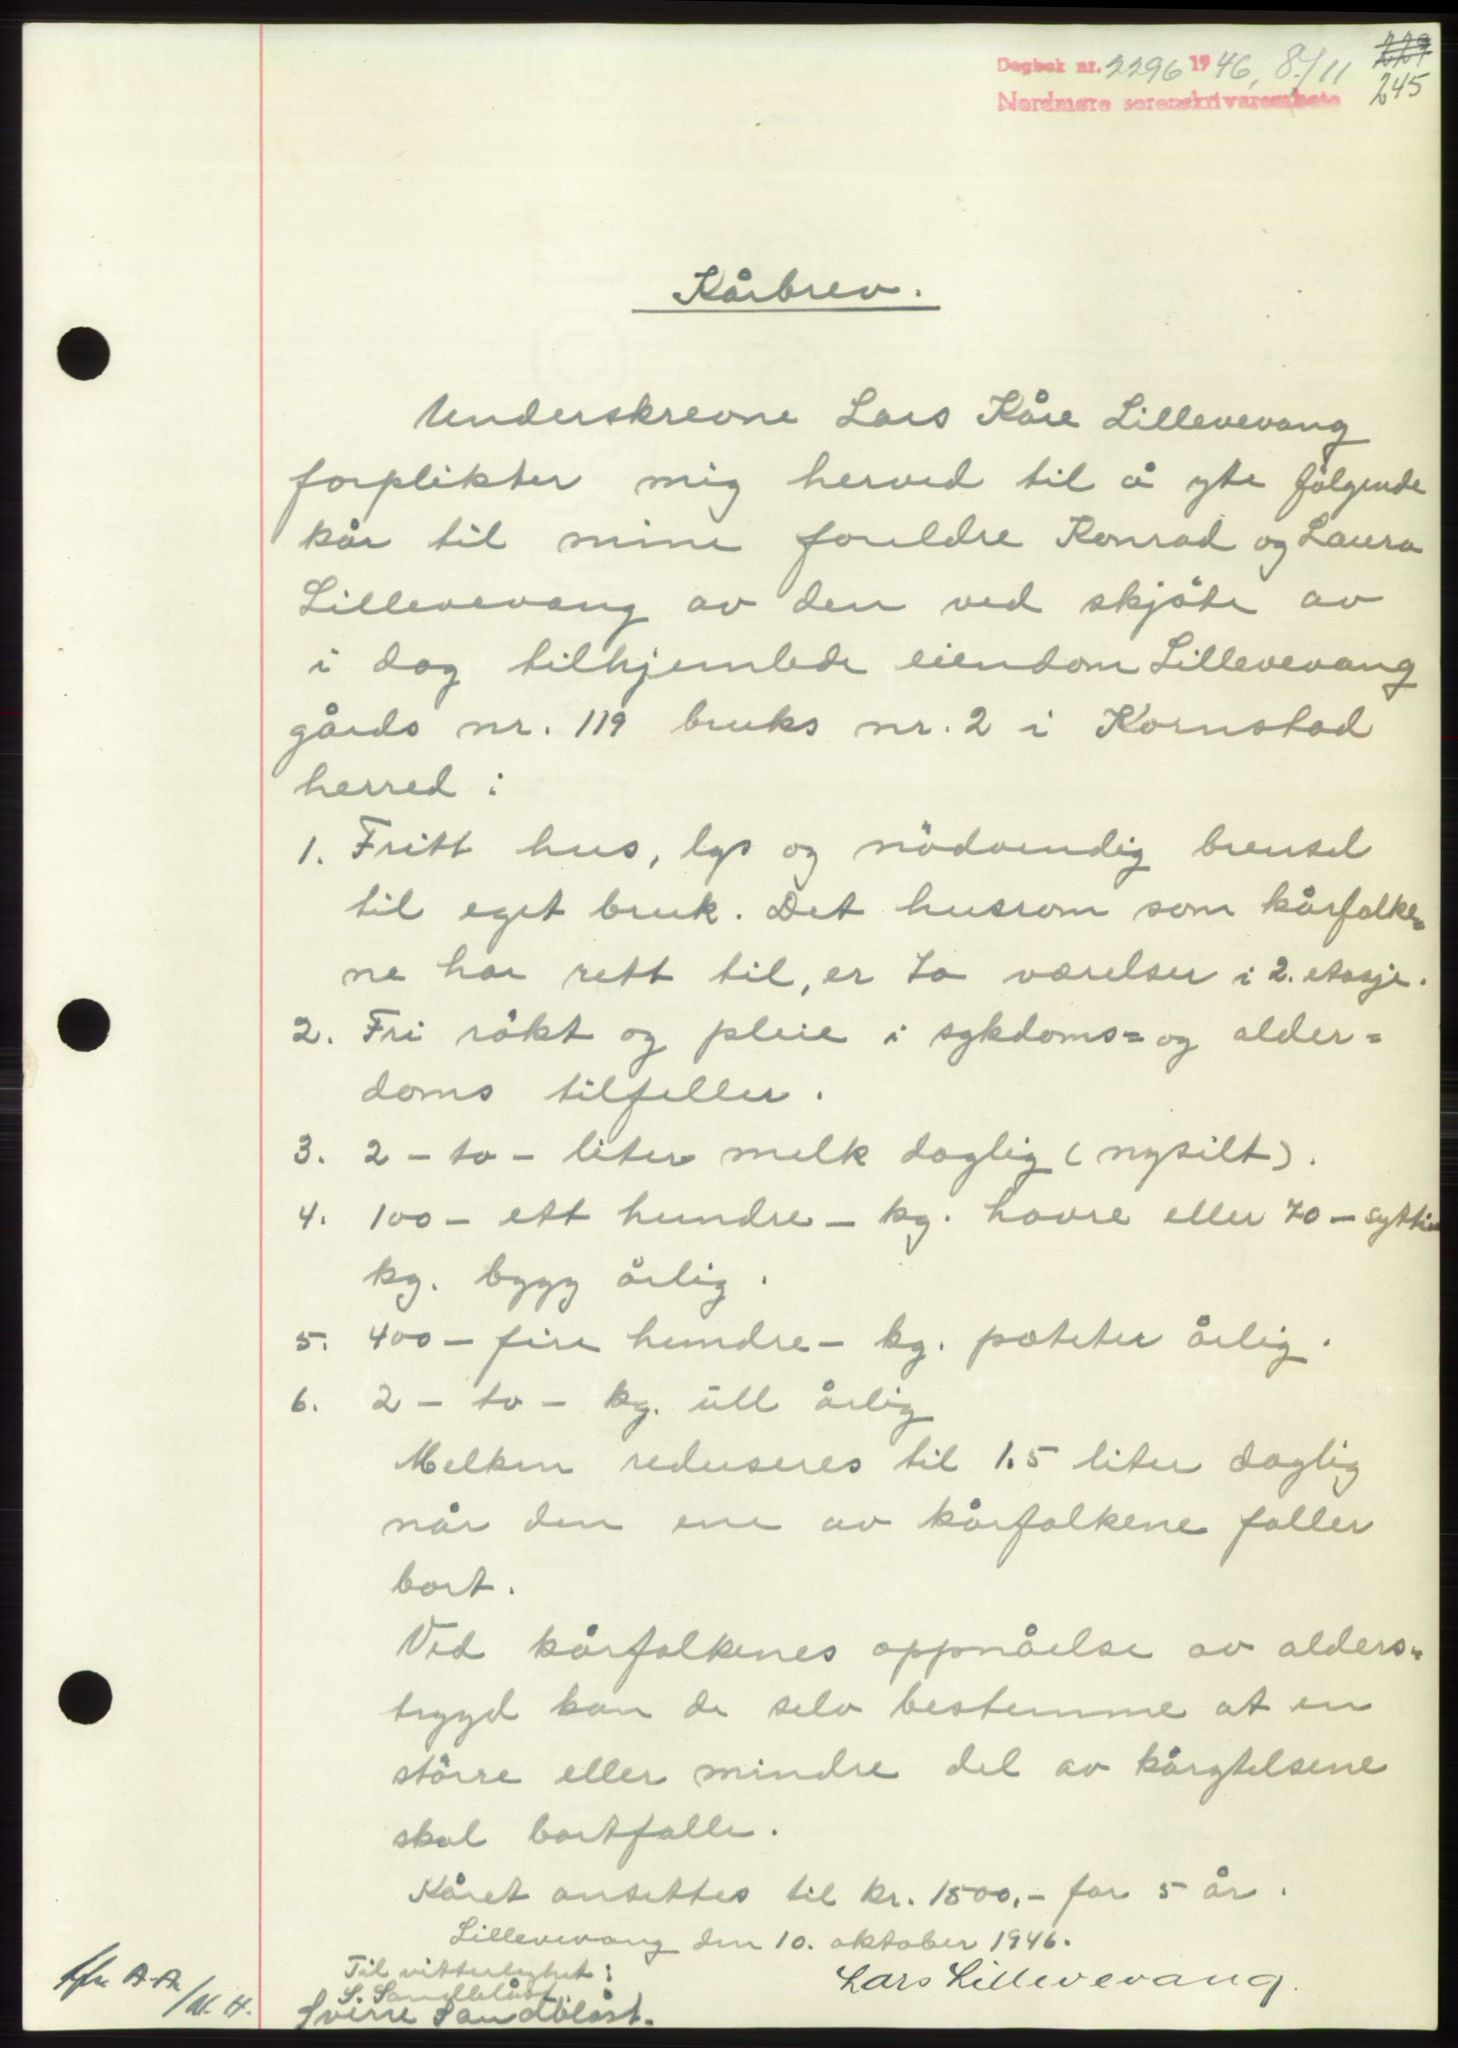 Dagbok nr. 2296 1946, 8/11
229
Nordmøre sorenskrivarembete
245
Kårbrev.
Underskrevne Lars Kåre Lillevevang
forplikter mig herved til å yte følgende
kår til mine foreldre Konrad og Laura
Lillevevang av den ved skjöte av
i dag tilhjemlede eiendom Lillevevang
gårds nr. 119 bruks nr. 2 i Kornstad
herred:
1. Fritt hus, lys og nödvendig brensel
til eget bruk. Det husrom som kårfolke=
ne har rett til, er to værelser i 2. etasje.
2. Fri rökt og pleie i sykdoms= og alder=
doms tilfeller.
3. 2 - to - liter melk daglig (nysilt).
4. 100 - ett hundre - kg. havre eller 70 - sytti
kg. bygg årlig.
5. 400 - fire hundre - kg. poteter årlig.
6. 2 - to - kg. ull årlig
Melken reduseres til 1.5 liter daglig
når den ene av kårfolkene faller
bort.
Ved kårfolkenes oppnåelse av alders=
trygd kan de selv bestemme at en
större eller mindre del av kårytelsene
skal bortfalle.
Kåret ansettes til kr. 1500,- for 5 år.
Lillevevang den 10. oktober 1946.
Til vitterlighet:
Lars Lillevevang.
S. Sandblåst.
Sverre Sandblåst.
/M. H.